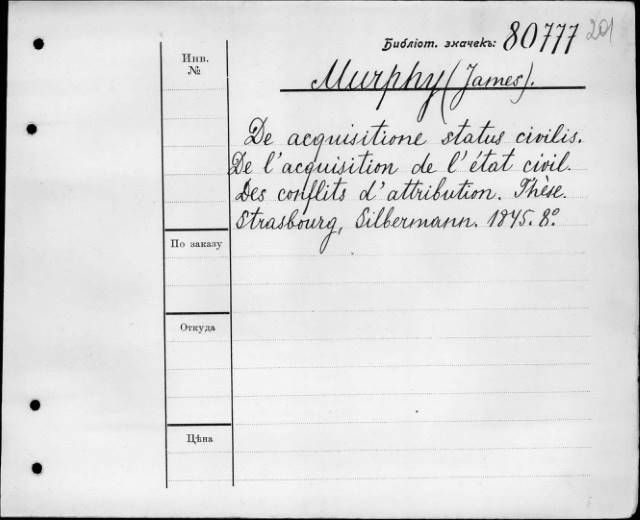 Библіот. значекъ: 80777 201
Инв.
№
Murphy (James).
De acquisitione status civilis.
De l'acquisition de l'état civil.
Des conflits d'attribution. Thèse.
Strasbourg, Silbermann. 1845. 8º.
По заказу
Откуда
Цѣна